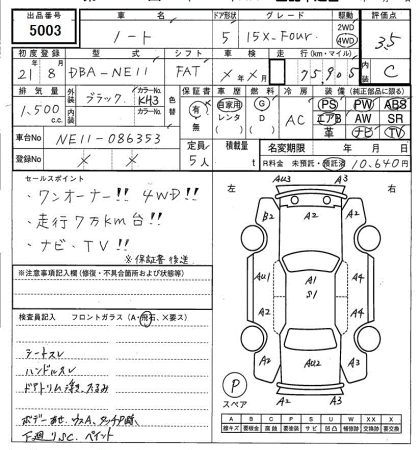 出品番号 車名 ドア形状 グレード 駆動 評価点
5003 ノート 5 15X-Four 2WD 4WD 3.5
初度登録 型式 シフト 車検 走行(km・マイル) 内装
21年8月 DBA-NE11 FAT ×年×月 75,905 C
排気量 外装 色替 保証書 車歴 燃料 冷房 装備(純正部品に限る)
1,500 c.c. ブラック カラーNo. KH3 有・無 自家用 レンタ ( ) G D ( ) AC PS PW ABS
内装 カラーNo. エアB AW SR
革 ナビ TV
車台No NE11-086353
定員 5人 積載量 t 名変期限 年 月 日
登録No × × R料金 未預託・預託済 10,640円
セールスポイント
・ワンオーナー!! 4WD!!
・走行7万km台!!
・ナビ、TV!!
※保証書後送
※注意事項記入欄(修復・不具合箇所および状態等)
検査員記入 フロントガラス(A・飛石、×要ス)
シートスレ
ハンドルスレ
左 右
AU3 A3
A2
B2 A2
AU1 A1 A4
S1
A2 A4
AU2 A3
A2 A3
P
スペア
A B C P S U W X XX ×
線キズ 要板金 腐蝕 要塗装 サビ 凹凸 補修跡 交換跡 要交換